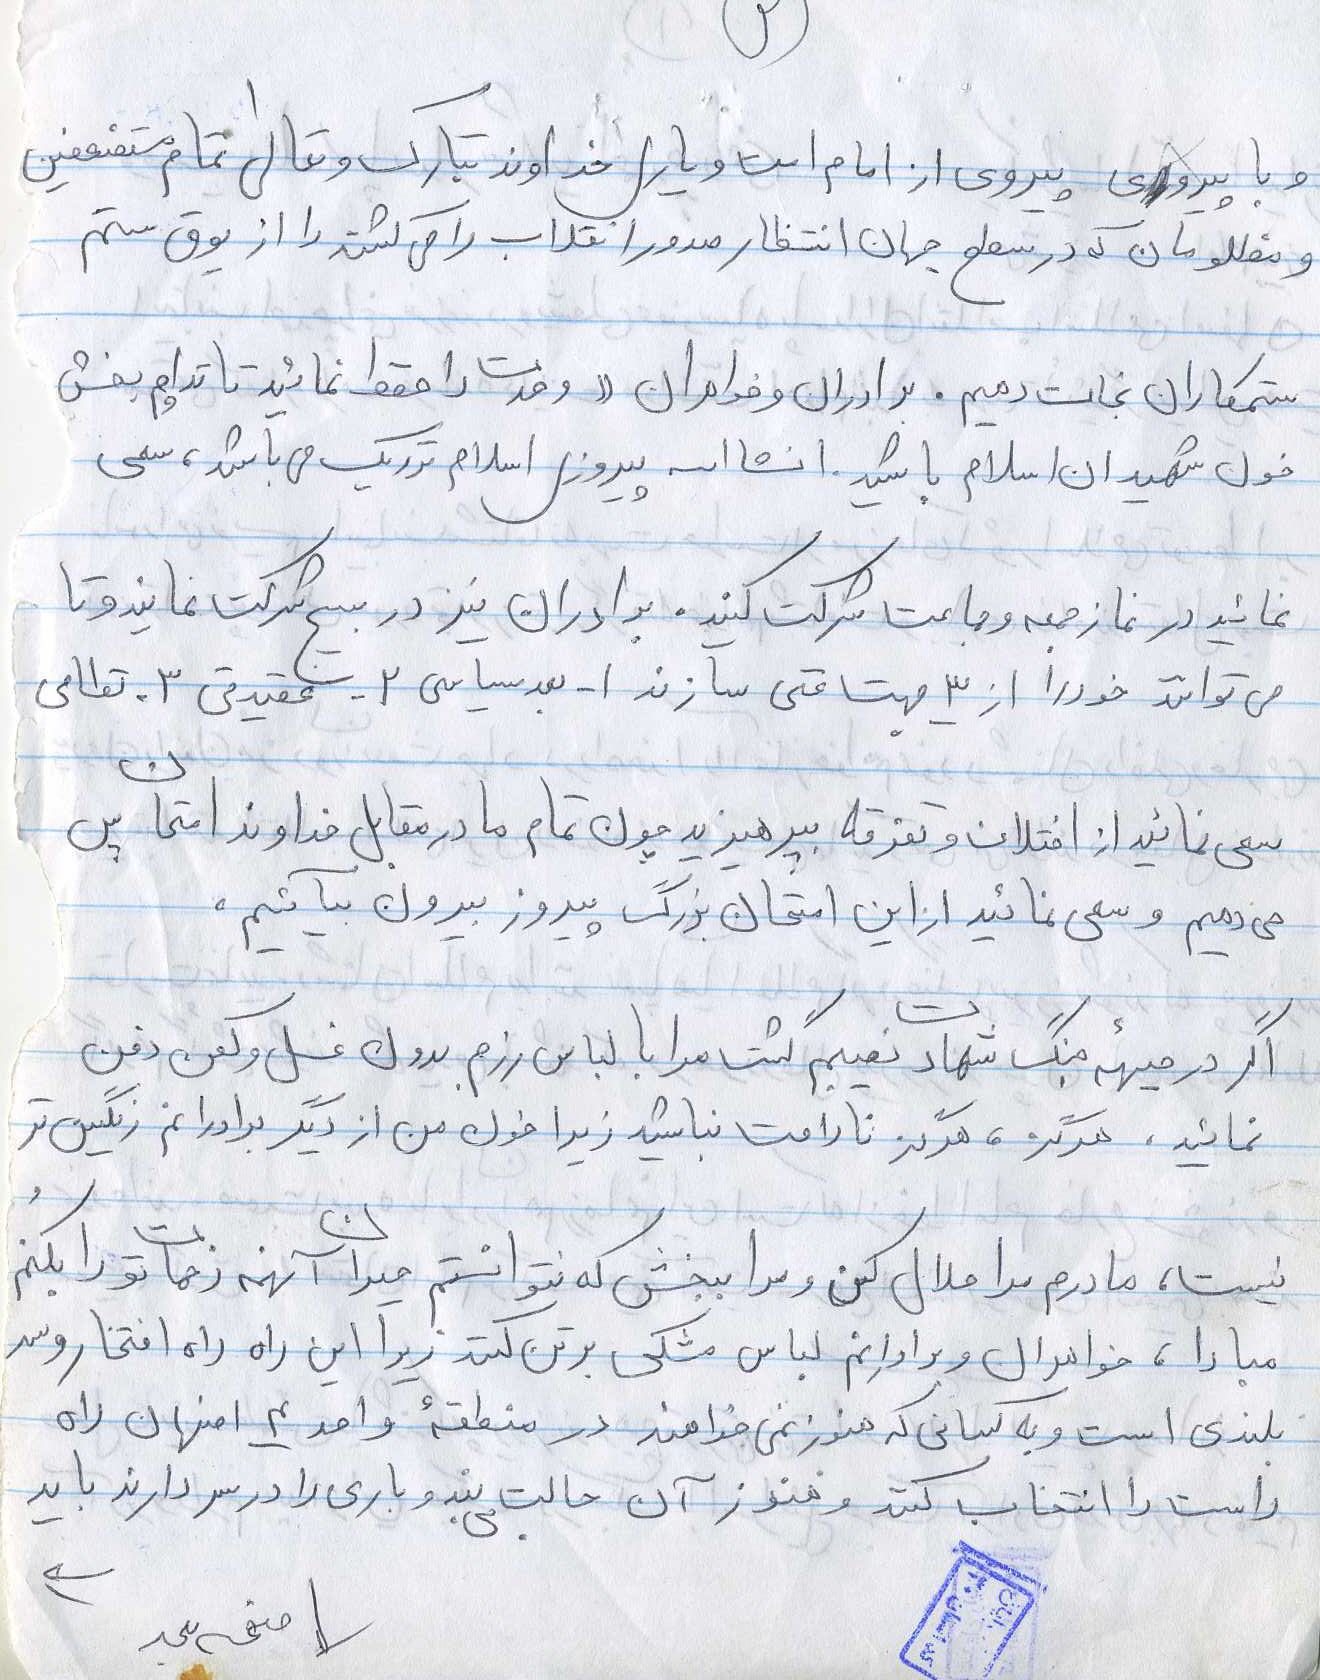 و با پیروی از امام است و یاری خداوند تبارک و تعالی تمام مستضعفین
و مظلومان که در سطح جهان انتظار صدور انقلاب را می کشند را از یوق ستم
ستمکاران نجات دهیم. برادران و خواهران « وحدت را حفظ نمائید تا تداوم بخش
خون شهیدان اسلام باشید. انشااله پیروزی اسلام نزدیک می باشد، سعی
نمائید در نماز جمعه و جماعت شرکت کنید. برادران نیز در بسیج شرکت نمایند و تا
می توانند خود را از ۳ جهت غنی سازند ۱- بعد سیاسی ۲- عقیدتی ۳- نظامی
سعی نمائید از اختلاف و تفرقه بپرهیزید چون تمام ما در مقابل خداوند امتحان پس
می دهیم و سعی نمائید از این امتحان بزرگ پیروز بیرون بیآئیم.
اگر در جبهۀ جنگ شهادت نصیبم گشت مرا با لباس رزم بدون غسل و کفن دفن
نمائید، هرگز، هرگز ناراحت نباشید زیرا خون من از دیگر برادرانم رنگین تر
نیست، مادرم مرا حلال کن و مرا ببخش که نتوانستم جبران آنهمه زحمات تو را بکنم
مبادا، خواهران و برادرانم لباس مشکی بر تن کنند زیرا این راه راه افتخار و سر
بلندی است و به کسانی که هنوز نمی خواهند در منطقۀ واحد ۲ اصفهان راه
راست را انتخاب کنند و هنوز آن حالت بی بندوباری را در سر دارند باید
صفحه بعد